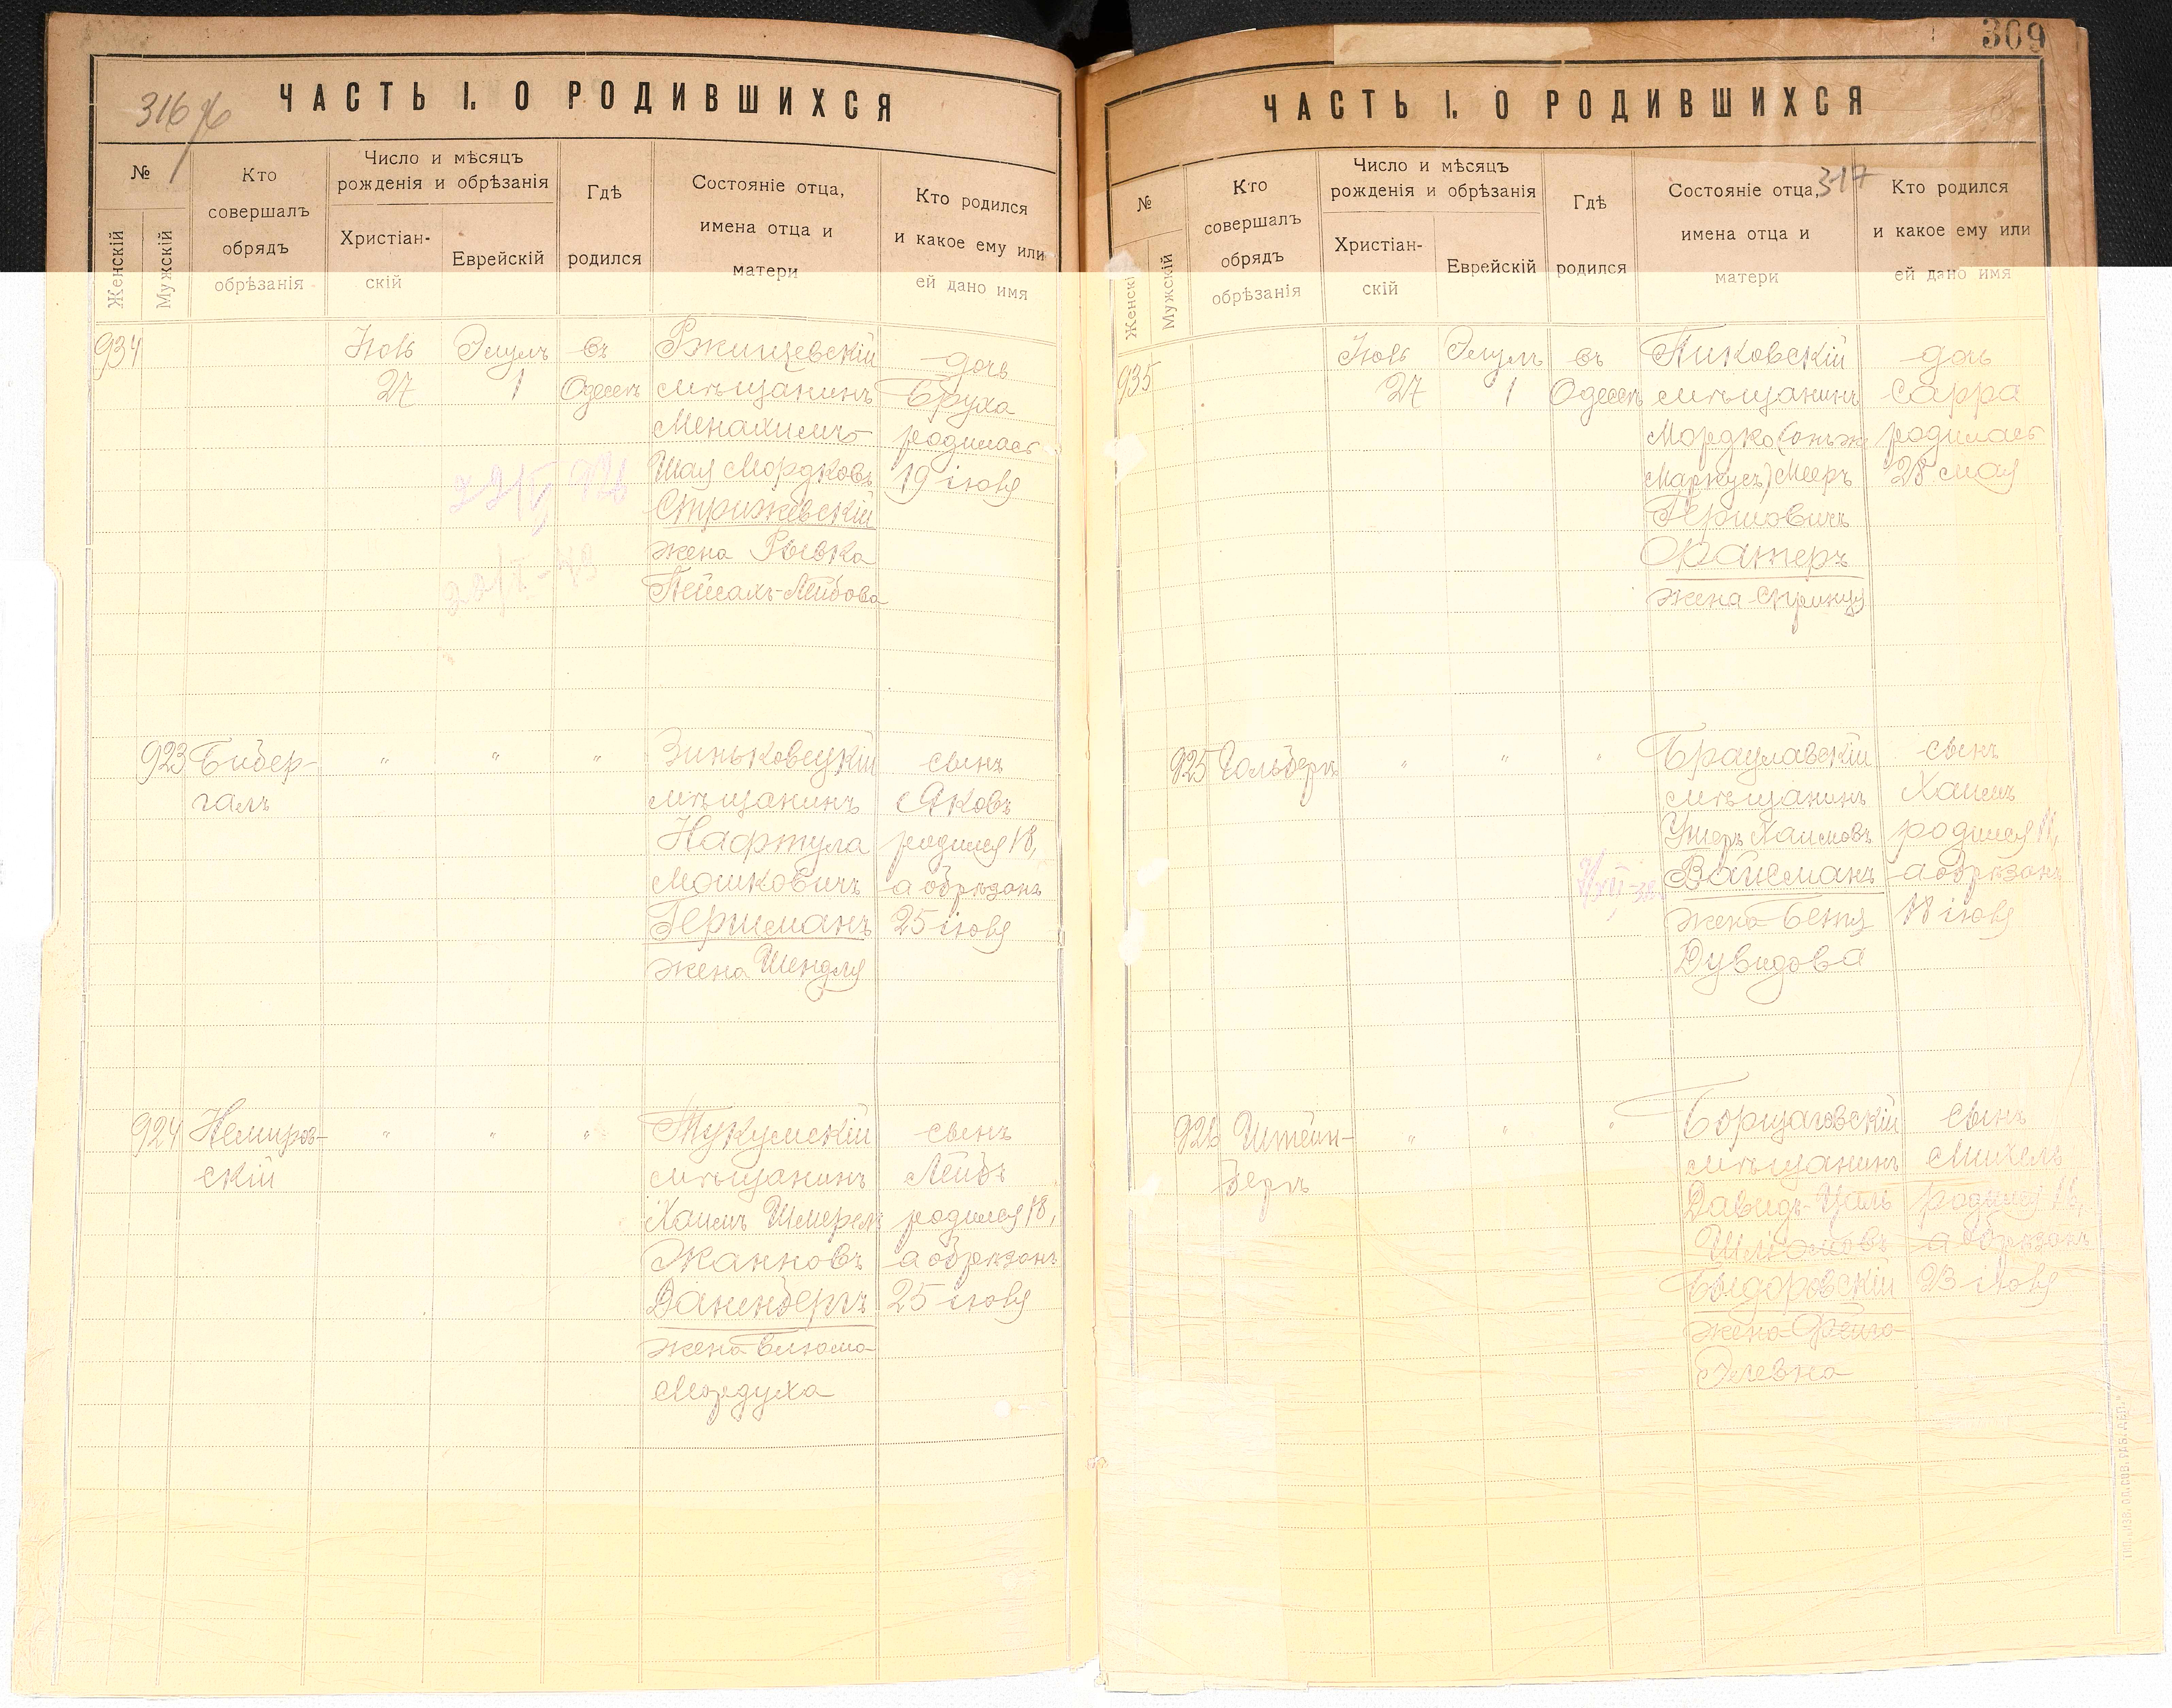 316
ЧАСТЬ I. О РОДИВШИХСЯ
№
Женскій
Мужскій
Кто
совершалъ
обрядъ
обрѣзанія
Число и мѣсяцъ
рожденія и обрѣзанія
Христіан-
скій
Еврейскій
Гдѣ
родился
Состояніе отца,
имена отца и
матери
Кто родился
и какое ему или
ей дано имя
934
Іюль
27
Элулъ
1
въ
Одессѣ
Ржищевскій
мѣщанинъ
Менахимъ-
Шая Мордковъ
Стрижевскій
жена Рывка
Пейсахъ-Лейбова
дочь
Бруха
родилась
19 іюля
923
Бибер-
галъ
"
"
"
Зиньковецкій
мѣщанинъ
Нафтула
Мошковичъ
Гершманъ
жена Шендля
сынъ
Яковъ
родился 18,
а обрѣзанъ
25 іюля
924
Немиров-
скій
"
"
"
Тукумскій
мѣщанинъ
Хаимъ Шмерел
Жанковъ
Даненбергъ
жена Блюма
Мордуха
сынъ
Лейбъ
родился 18,
а обрѣзанъ
25 іюля
309
ЧАСТЬ I. О РОДИВШИХСЯ
317
№
Женскі
Мужскій
Кто
совершалъ
обрядъ
обрѣзанія
Число и мѣсяцъ
рожденія и обрѣзанія
Христіан-
скій
Еврейскій
Гдѣ
родился
Состояніе отца,
имена отца и
матери
Кто родился
и какое ему или
ей дано имя
935
Іюль
27
Элулъ
1
въ
Одессѣ
Пиковскій
мѣщанинъ
Мордко (онъ-же
Маркусъ) Мееръ
Гершовичъ
Фатеръ
жена Спринця
дочь
Сарра
родилась
28 мая
925
Гольбергъ
"
"
"
Брацлавскій
мѣщанинъ
Ушеръ Хаимовъ
Вайсманъ
жена Бетя
Дувидова
сынъ
Хаимъ
родился 11,
а обрѣзанъ
18 іюля
926
Штейн-
бергъ
"
"
"
Борщаговскій
мѣщанинъ
Давидъ-Цаль
Шліомовъ
жена Фейга
Элевна
сынъ
Михель
родился 16,
а обрѣзанъ
23 іюля